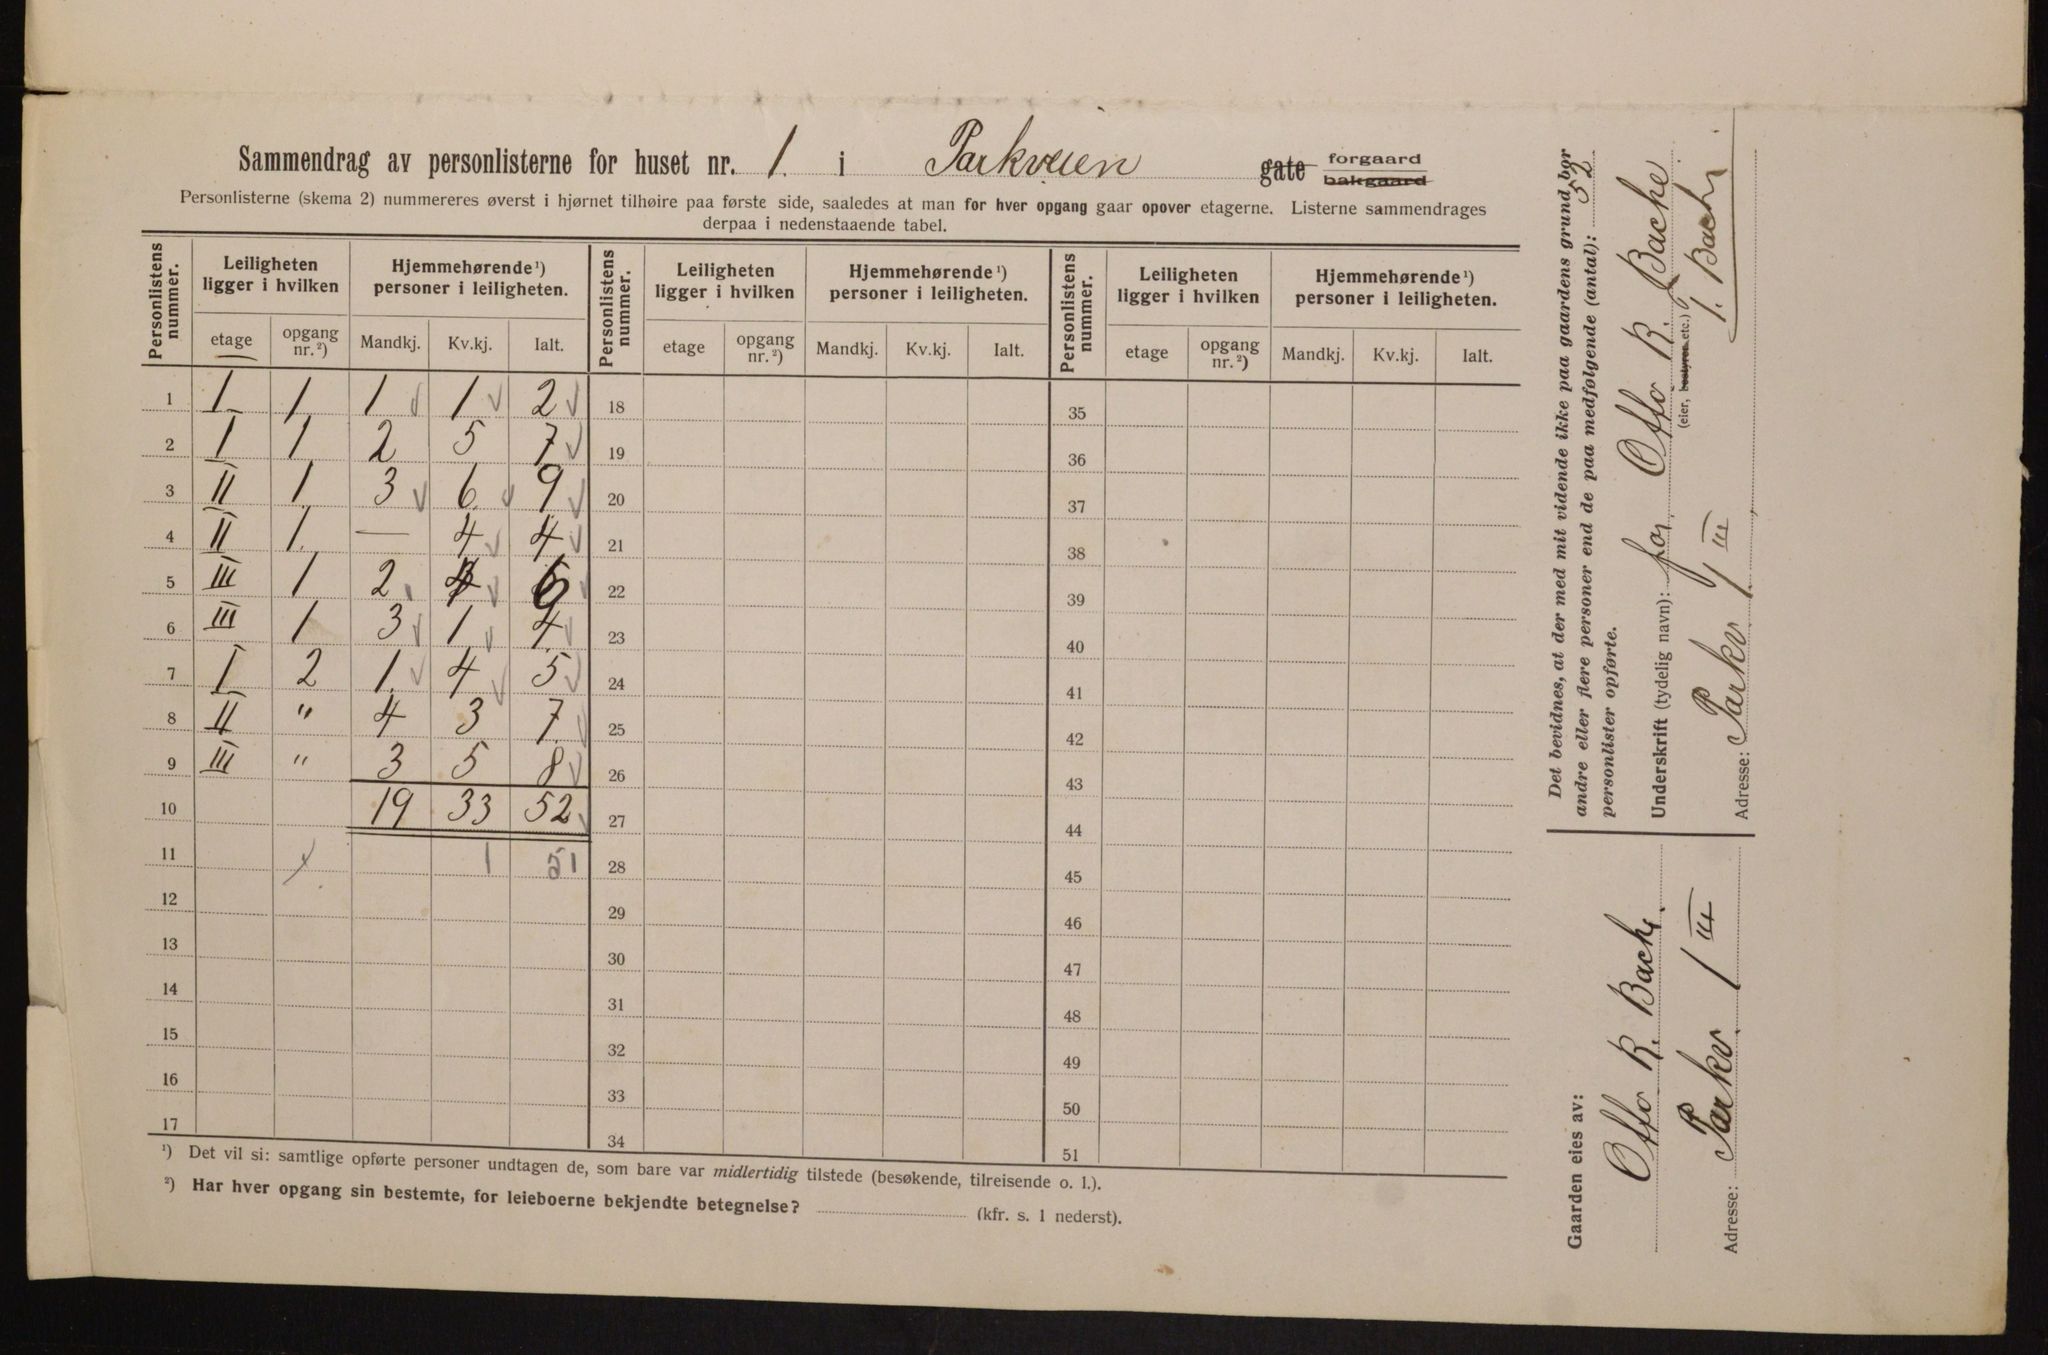 Sammendrag av personlisterne for huset nr. 1. i Parkveien gate forgaard bakgaard
Personlisterne (skema 2) nummereres øverst i hjørnet tilhøire paa første side, saaledes at man for hver opgang gaar opover etagerne. Listerne sammendrages
derpaa i nedenstaaende tabel.
Personlistens nummer. Leiligheten ligger i hvilken Hjemmehørende ¹) personer i leiligheten. Personlistens nummer. Leiligheten ligger i hvilken Hjemmehørende ¹) personer i leiligheten. Personlistens nummer. Leiligheten ligger i hvilken Hjemmehørende ¹) personer i leiligheten.
etage opgang nr.²) Mandkj. Kv.kj. Ialt. etage opgang nr.²) Mandkj. Kv.kj. Ialt. etage opgang nr.²) Mandkj. Kv.kj. Ialt.
1 I 1 1 1 2 18 35
2 I 1 2 5 7 19 36
3 II 1 3 6 9 20 37
4 II 1. — 4 4 21 38
5 III 1 2 4 6 22 39
6 III 1 3 1 4 23 40
7 I 2 1 4 5 24 41
8 II " 4 3 7 25 42
9 III " 3 5 8 26 43
10 19 33 52 27 44
11 1 51 28 45
12 29 46
13 30 47
14 31 48
15 32 49
16 33 50
17 34 51
¹) Det vil si: samtlige opførte personer undtagen de, som bare var midlertidig tilstede (besøkende, tilreisende o. l.).
²) Har hver opgang sin bestemte, for leieboerne bekjendte betegnelse? (kfr. s. 1 nederst).
Det bevidnes, at der med mit vidende ikke paa gaardens grund bor
andre eller flere personer end de paa medfølgende (antal): 52
personlister opførte.
Underskrift (tydelig navn): for Offo R. Bache
(eier, bestyrer etc.)
T. Bache
Adresse: Parkv 1 III
Gaarden eies av:
Offo R. Bache
Adresse: Parkv. 1 III